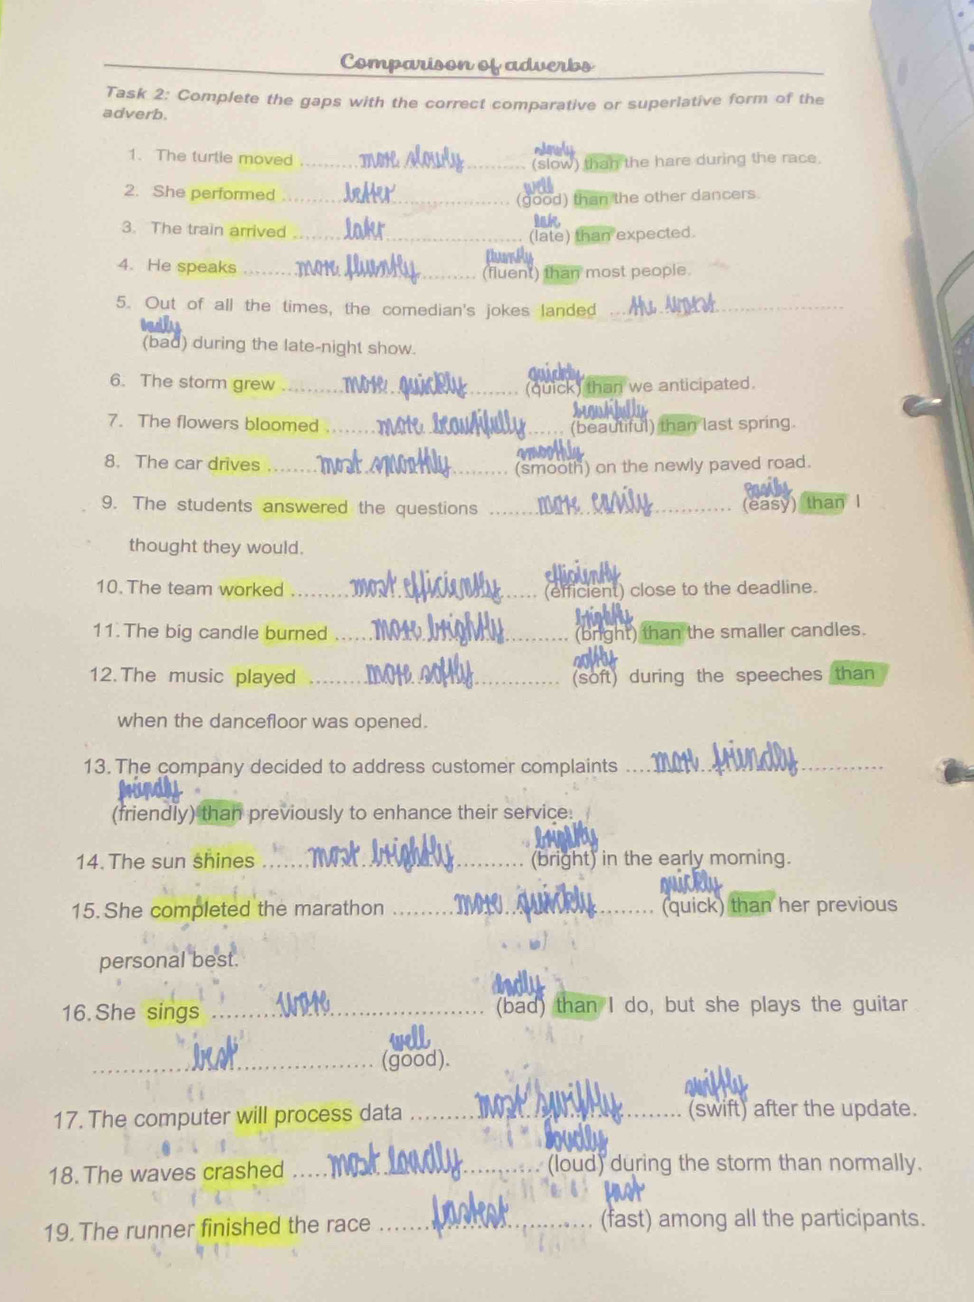 Comparison of adverbs
Task 2: Complete the gaps with the correct comparative or superlative form of the
adverb.
slowly
1. The turtle moved ..........more slowly.......... (slow) than the hare during the race.
well
2. She performed ..........better.................... (good) than the other dancers.
late
3. The train arrived ..........later.................... (late) than expected.
fluently
4. He speaks ..........more fluently.......... (fluent) than most people.
5. Out of all the times, the comedian's jokes landed ...the worst....................
badly
(bad) during the late-night show.
quickly
6. The storm grew ..........more quickly.......... (quick) than we anticipated.
beautifully
7. The flowers bloomed ........more beautifully...... (beautiful) than last spring.
smoothly
8. The car drives ........most smoothly.......... (smooth) on the newly paved road.
easily
9. The students answered the questions ........more easily.............. (easy) than I
thought they would.
efficiently
10. The team worked ..........most efficiently...... (efficient) close to the deadline.
brightly
11. The big candle burned ......more brightly.......... (bright) than the smaller candles.
softly
12. The music played ..........more softly.............. (soft) during the speeches than
when the dancefloor was opened.
13. The company decided to address customer complaints ....more friendly..............
friendly
(friendly) than previously to enhance their service.
brightly
14. The sun shines ........most brightly............ (bright) in the early morning.
quickly
15. She completed the marathon ..........more quickly........ (quick) than her previous
personal best.
badly
16. She sings ..........worse.......................... (bad) than I do, but she plays the guitar
well
................best...................... (good).
swiftly
17. The computer will process data ..........most swiftly........ (swift) after the update.
loudly
18. The waves crashed .....most loudly............ (loud) during the storm than normally.
fast
19. The runner finished the race ........fastest.............. (fast) among all the participants.